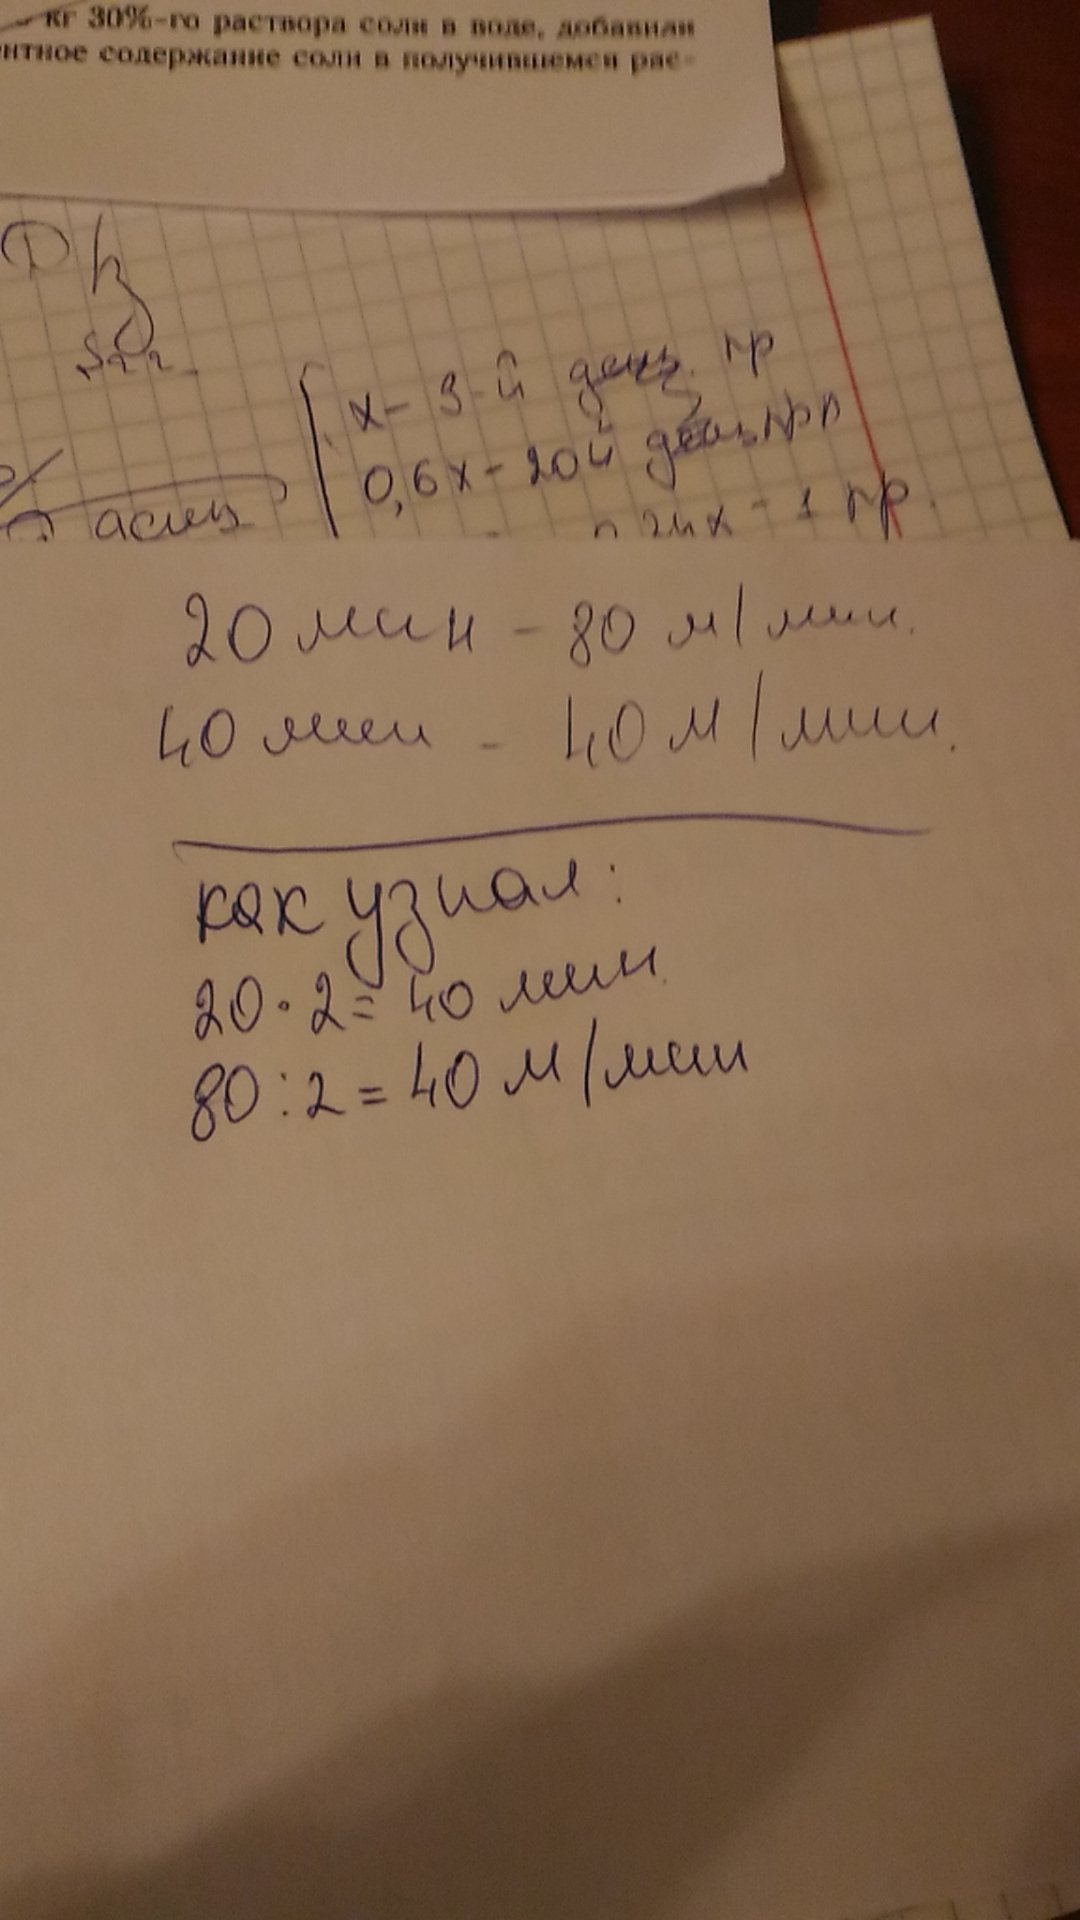 кг 30%-го раствора соли в воде, добавили
ентное содержание соли в получившемся рас-
х - 3-й день пр
0,6х - 20й день пр
24х - 1 пр.
20 мин - 80 м/мин.
40 мин - 40 м/мин.
как узнал:
20·2=40 мин.
80:2=40 м/мин